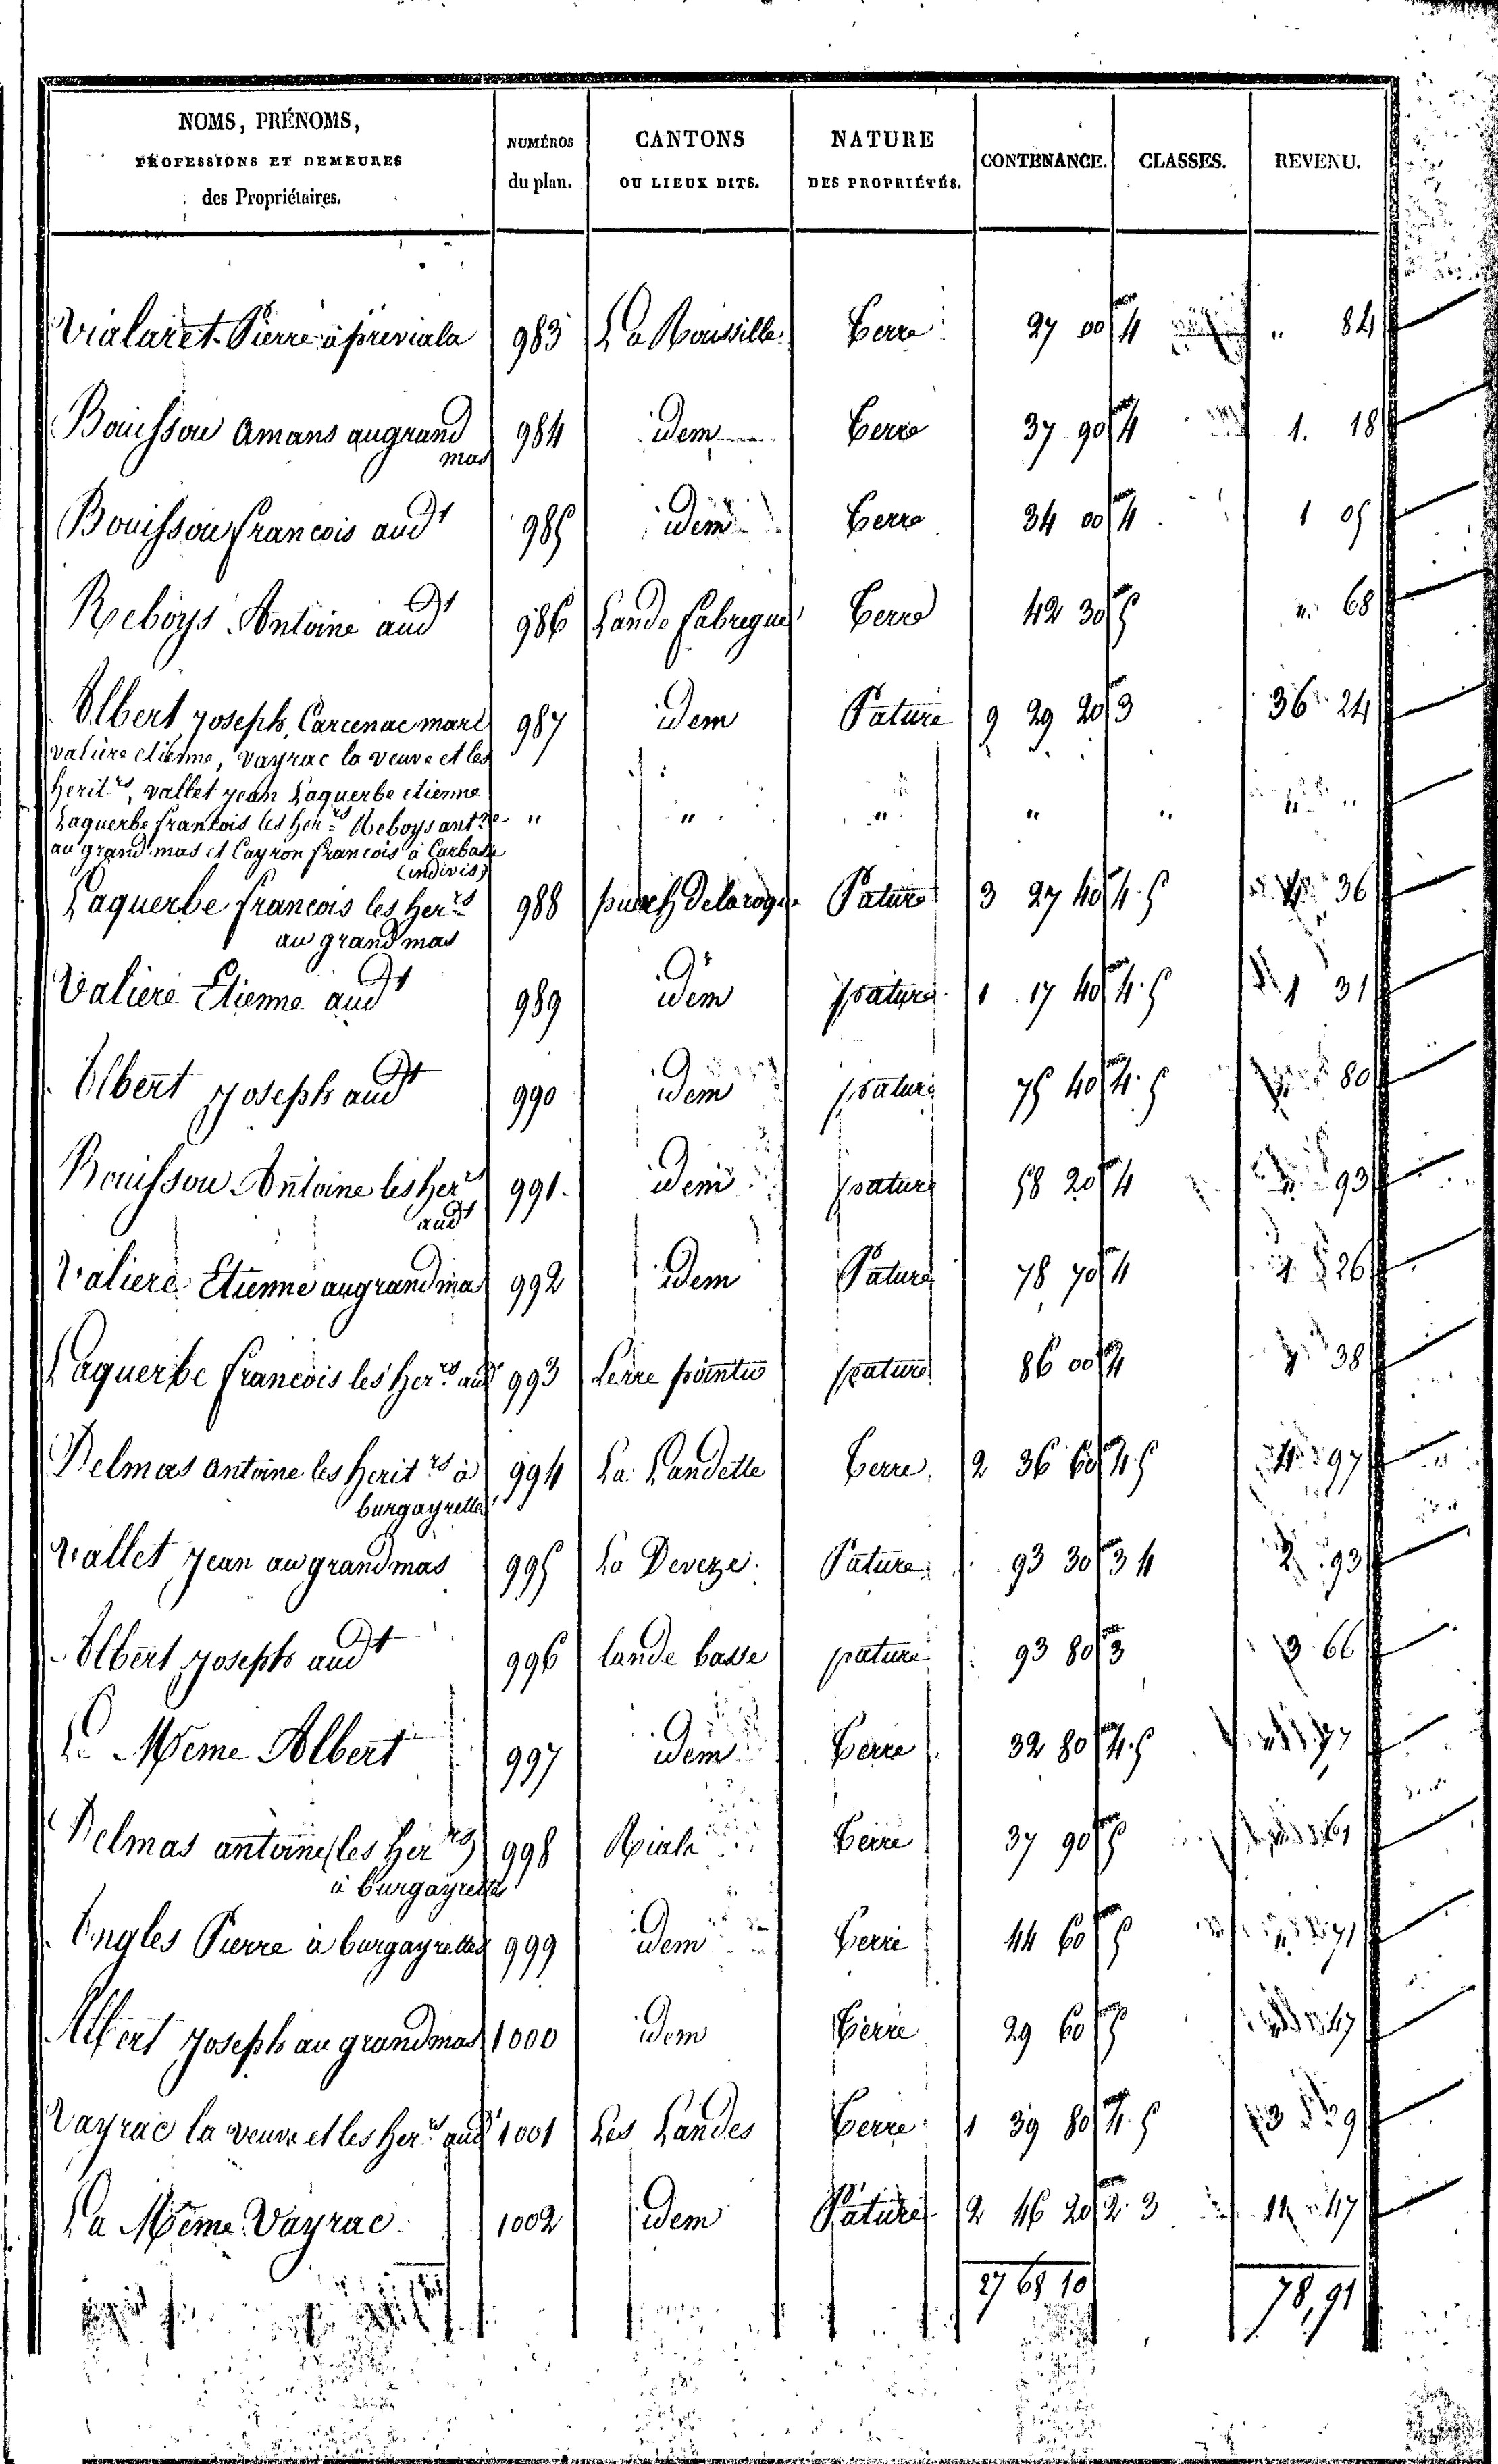 NOMS, PRÉNOMS, PROFESSIONS ET DEMEURES des Propriétaires. NUMÉROS du plan. CANTONS OU LIEUX DITS. NATURE DES PROPRIÉTÉS. CONTENANCE. CLASSES. REVENU.
Vialaret Pierre à previala 983 La Roussille Terre 27 00 4 " 84
Bouissou Amans au grand mas 984 idem Terre 37 90 4 1. 18
Bouissou francois aud^t 985 idem Terre 34 00 4 1 05
Reboys Antoine aud^t 986 Lande fabregues Terre 42 30 5 " 68
Albert Joseph, Carcenac marc 987 idem Pature 9 29 20 3 36 24
valiere etienne, vayrac la veuve et les
herit^rs, vallet jean Laquerbe etienne
Laquerbe francois les her^rs Reboys ant^ne " " " " " " "
au grand mas et Cayron francois à Carbasse
(indivis)
Laquerbe francois les her^rs 988 puech de laroque Pature 3 27 40 4. 5 36
au grand mas
Valiere Etienne aud^t 989 idem pature 1 17 40 4. 5 1 31
Albert Joseph aud^t 990 idem pature 75 40 4. 5 80
Bouissou Antoine les her^rs 991 idem pature 58 20 4 " 93
aud^t
Valiere Etienne au grand mas 992 idem Pature 78 70 4 1 26
Laquerbe francois les her^rs aud^t 993 Serre pointu pature 86 00 4 1 38
Delmas antoine les herit^rs à 994 La Landette Terre 2 36 60 4. 5 97
burgayrettes
Vallet Jean au grand mas 995 La Deveze Pature 93 30 3 4 2 93
Albert Joseph aud^t 996 lande basse pature 93 80 3 3 66
Le Meme Albert 997 idem Terre 32 80 4. 5 77
Delmas antoine (les her^rs) 998 Terre 37 90 5 61
à burgayrettes
Angles Pierre à burgayrettes 999 idem Terre 44 60 5 71
Albert Joseph au grand mas 1000 idem Terre 29 60 5 47
Vayrac la veuve et les her^rs aud^t 1001 Les Landes Terre 1 39 80 4. 5 3 9
La Mème Vayrac 1002 idem Pature 2 46 20 2. 3 11 47
27 65 10 78,91